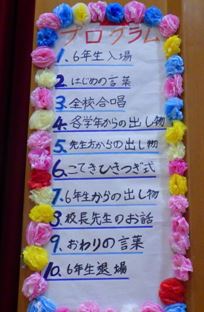 プログラム
1. 6年生入場
2. はじめの言葉
3. 全校合唱
4. 各学年からの出し物
5. 先生方からの出し物
6. こてきひきつぎ式
7. 6年生からの出し物
8. 校長先生のお話
9. おわりの言葉
10. 6年生退場